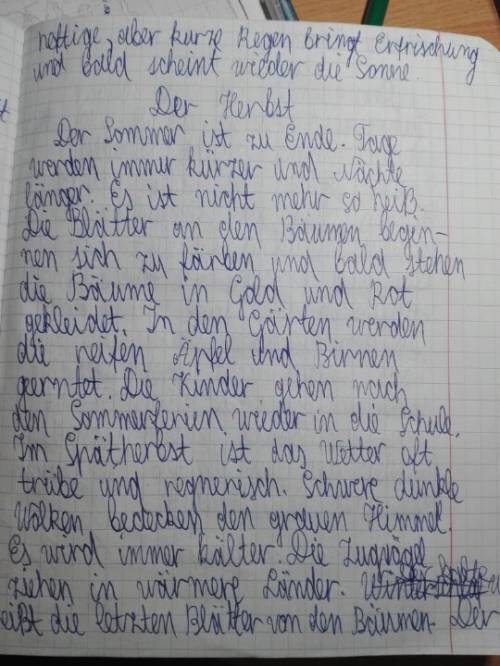 heftige, aber kurze Regen bringt Erfrischung
und bald scheint wieder die Sonne.
Der Herbst
Der Sommer ist zu Ende. Tage
werden immer kürzer und Nächte
länger. Es ist nicht mehr so heiß.
Die Blätter an den Bäumen begin-
nen sich zu färben und bald stehen
die Bäume in Gold und Rot
gekleidet. In den Gärten werden
die reifen Äpfel und Birnen
gerntet. Die Kinder gehen nach
den Sommerferien wieder in die Schule.
Im Spätherbst ist das Wetter oft
trübe und regnerisch. Schwere dunkle
Wolken bedecken den grauen Himmel.
Es wird immer kälter. Die Zugvögel
ziehen in wärmere Länder.
eißt die letzten Blätter von den Bäumen. Der